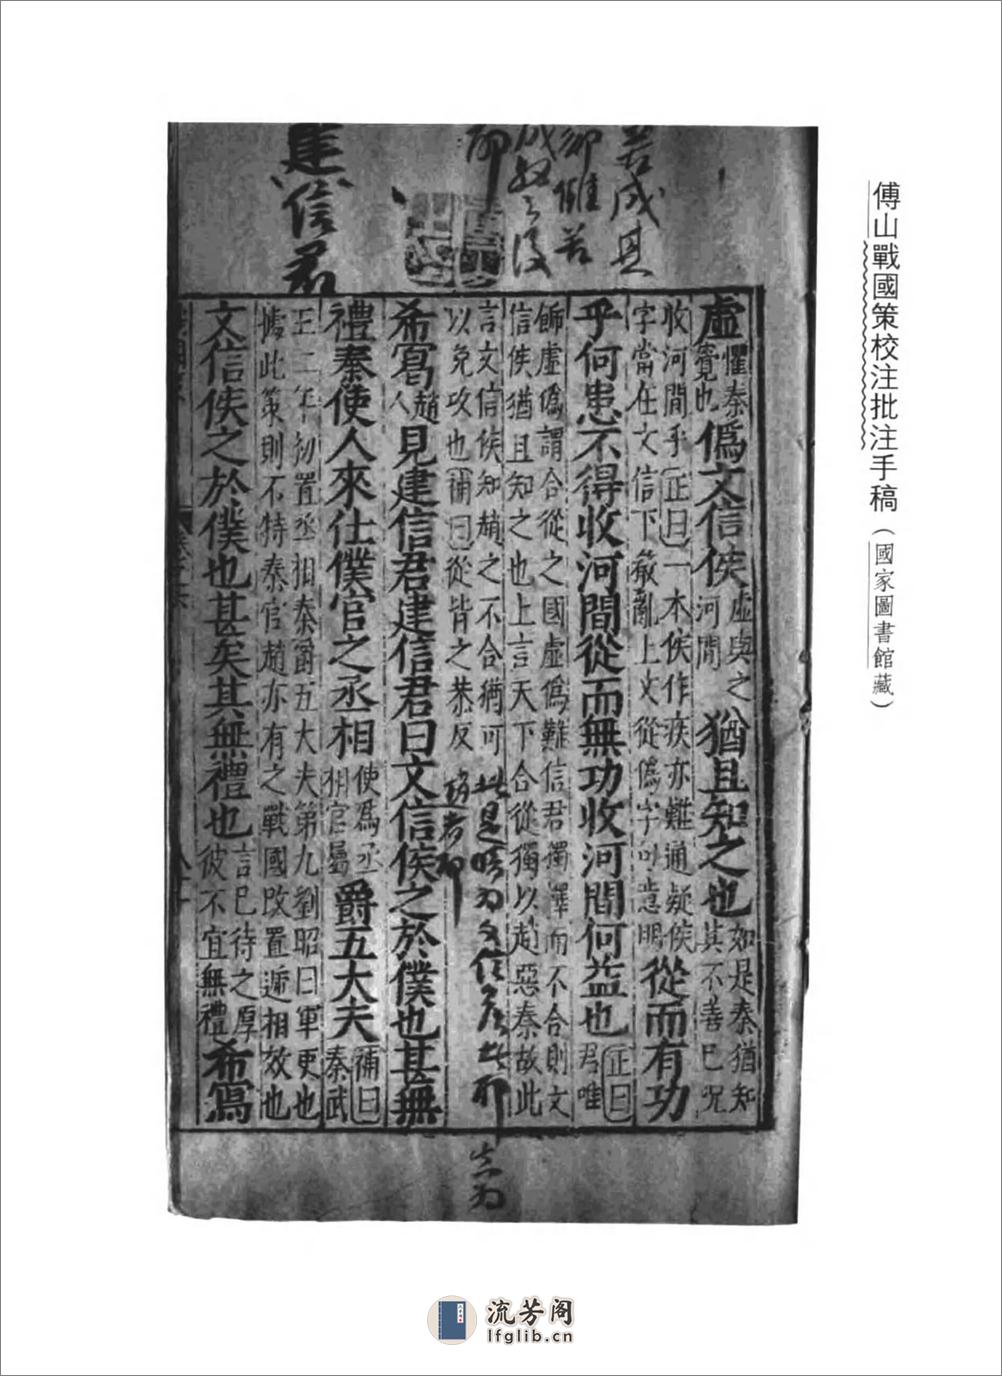 傅山戰國策校注批注手稿(國家圖書館藏)
若成其
卿雖苦
成好之後
耶
建信君
虛懼秦覺也僞文信侯虛與之河間猶且知之也如是秦猶知其不善已況
收河間乎正曰一本侯作疾亦難通疑侯字當在文信下嚴亂上文從僞字可意明從而有功
乎何患不得收河間從而無功收河間何益也正曰君唯
飾虛僞謂合從之國虛僞難信君獨擇而不合則文信侯猶且知之也上言天下合從獨以趙惡秦故此
言文信侯知趙之不合猶可以免攻也補曰從皆之恭反
此是時為文信君此耶
趙者耶
希寫趙人見建信君建信君曰文信侯之於僕也甚無
禮秦使人來仕僕官之丞相使爲丞相官屬爵五大夫補曰秦武
王二年初置丞相秦爵五大夫第九劉昭曰軍吏也據此策則不特秦官趙亦有之戰國改置遞相效也
文信侯之於僕也甚矣其無禮也言已待之厚彼不宜無禮希寫
流芳阁
lfglib.cn